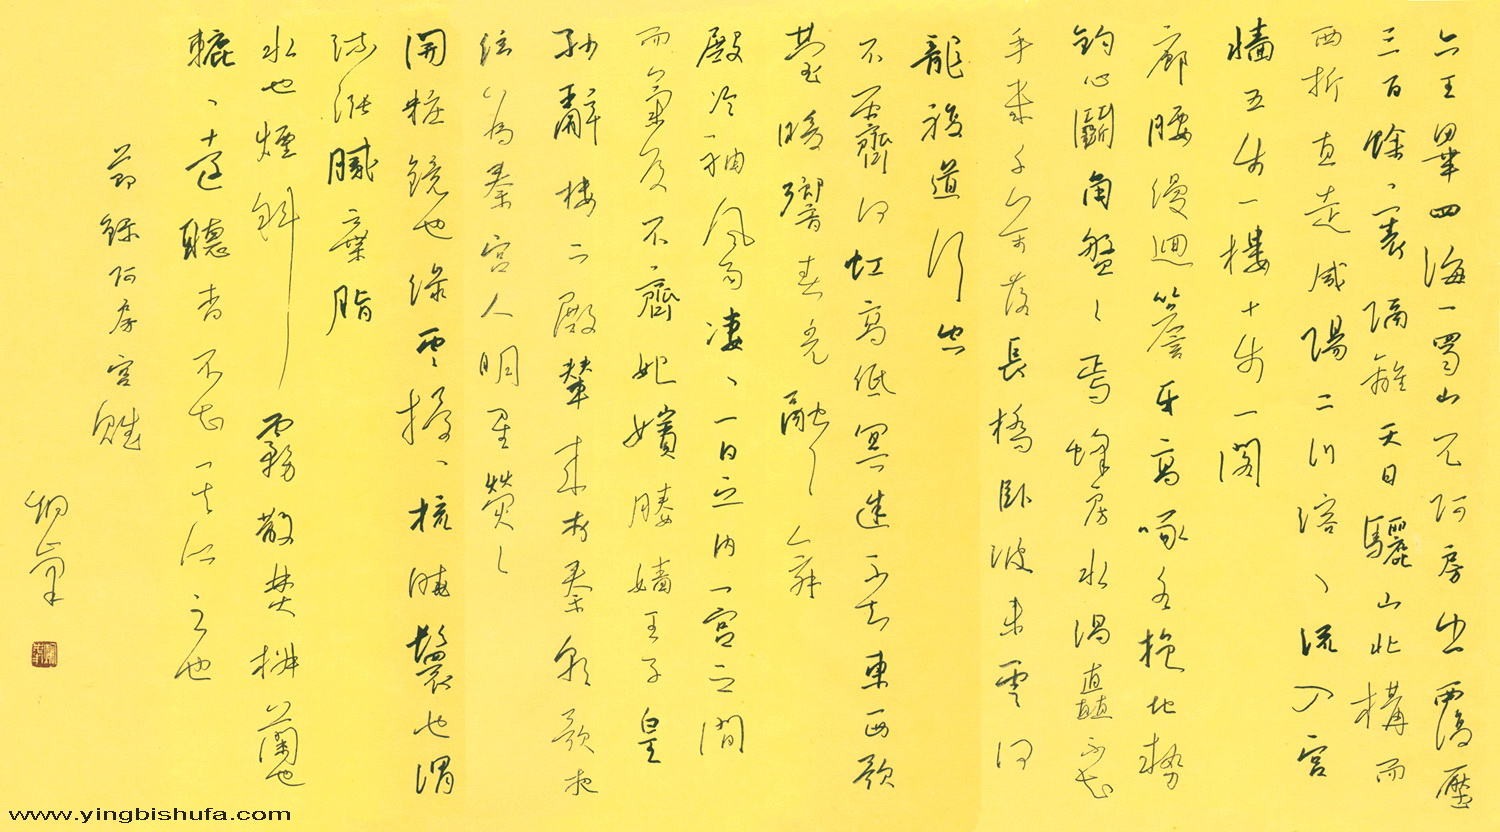 六王畢四海一蜀山兀阿房出覆壓
三百餘裏隔離天日驪山北構而
西折直走咸陽二川溶、流入宮
牆五步一樓十步一閣
廊腰縵迴簷牙高啄各抱地勢
鈎心鬭角盤〻焉蜂房水渦矗不知
乎幾千萬落長橋卧波未雲何
龍複道行空
不霽何虹高低冥迷不知東西歌
臺暖響春光融〻舞
殿冷袖風雨凄、一日之内一宮之間
而氣候不齊妃嬪媵嬙王子皇
孫辭樓下殿輦來於秦朝歌夜
弦為秦宮人明星熒〻
開粧鏡也綠雲擾、梳曉鬟也渭
流漲膩棄脂
水也煙斜霧散焚椒蘭也
轆、遠聽杳不知其所之也
節錄阿房宮賦
www.yingbishufa.com